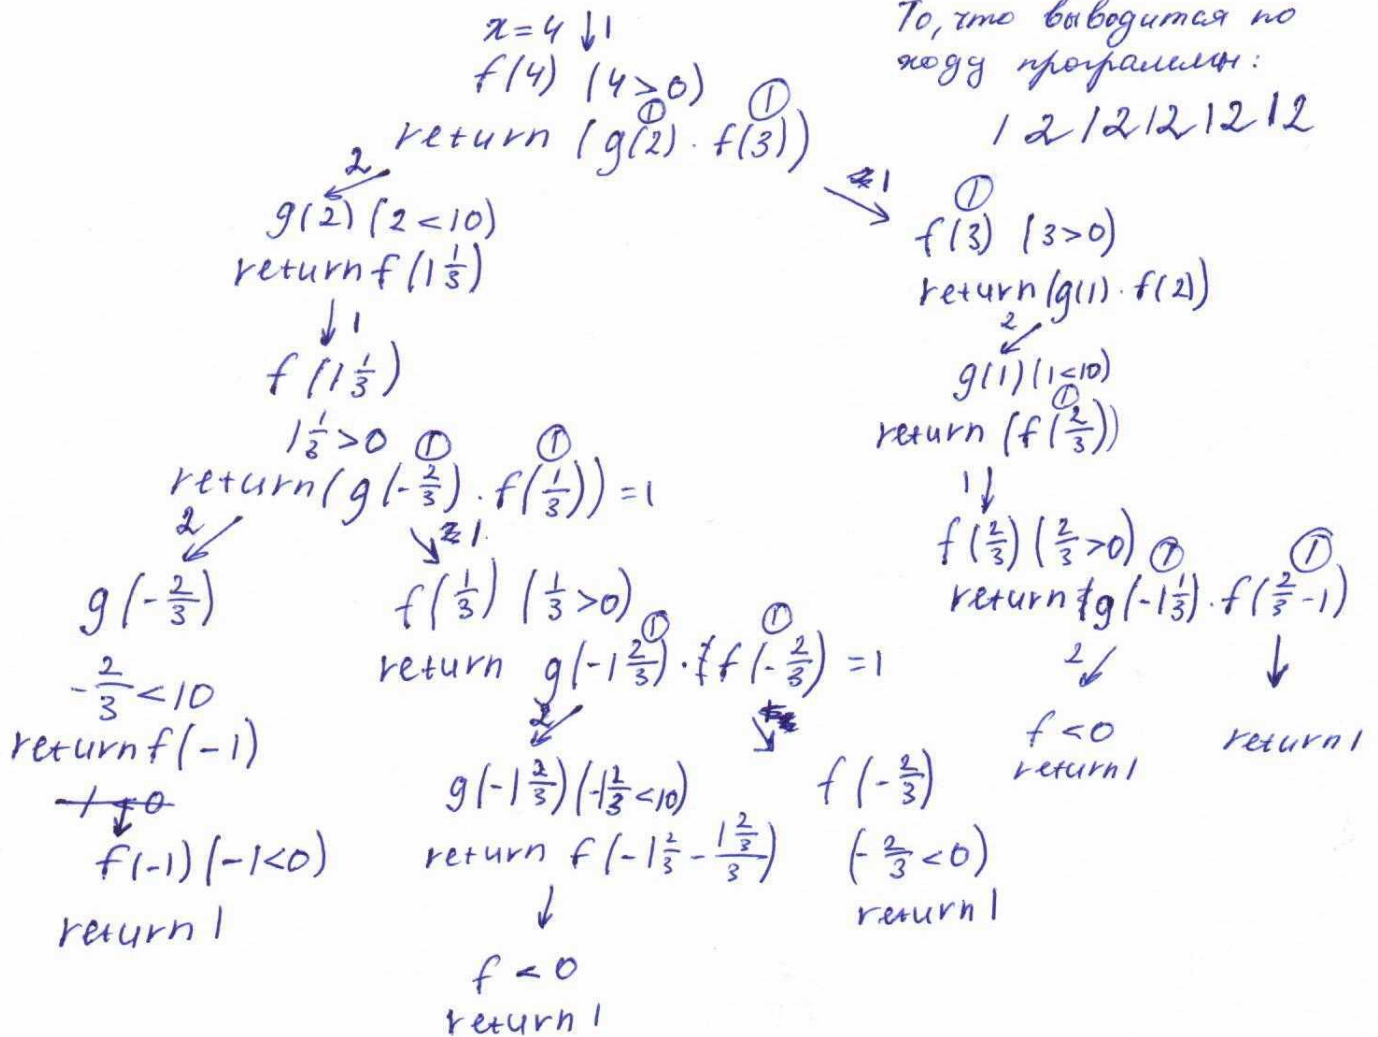 x = 4 ↓ 1
f(4) (4>0)
① ①
return (g(2) · f(3))
То, что выводится по
ходу программы:
1 2 1 2 1 2 1 2 1 2
2
g(2) (2<10)
return f(1 1/3)
↓ 1
f(1 1/3)
1 1/3 > 0 ① ①
return(g(-2/3) · f(1/3)) = 1
2
g(-2/3)
-2/3 < 10
return f(-1)
-1 < 0
f(-1) (-1<0)
return 1
1.
f(1/3) (1/3>0)
① ①
return g(-1 2/3) · f(-2/3) = 1
2
g(-1 2/3) (-1 2/3 < 10)
return f(-1 2/3 - (1 2/3)/3)
↓
f < 0
return 1
f(-2/3)
(-2/3 < 0)
return 1
1
①
f(3) (3>0)
return (g(1) · f(2))
2
g(1) (1<10)
①
return (f(2/3))
1 ↓
f(2/3) (2/3>0) ① ①
return g(-1 1/3) · f(2/3 - 1)
2
f < 0
return 1
↓
return 1